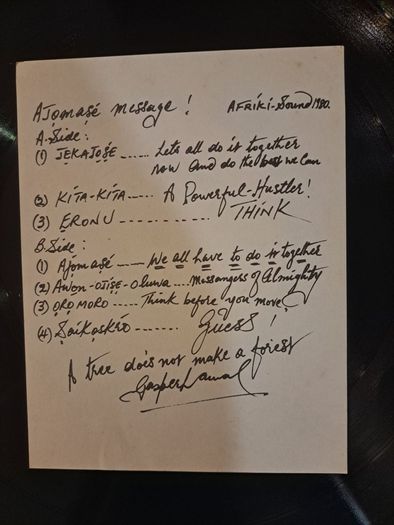 Ajọmasé message !
AFRIKI-Sound 1980.
A-Side :
(1) JẸKAJOṢE ...... Lets all do it together
now and do the best we can
(2) KITA-KITA ..... A Powerful-Hustler!
(3) ERONU - - - - - - - - - THINK
B-Side :
(1) Ajọmasé ..... We all have to do it together
(2) Awon-OJIṢẸ-Oluwa .... Messangers of Almighty
(3) ỌRỌMORO ---- Think before you move
(4) Ṣaikọskẹrọ ------- Guess !
A tree does not make a forest
Gasper Lawal